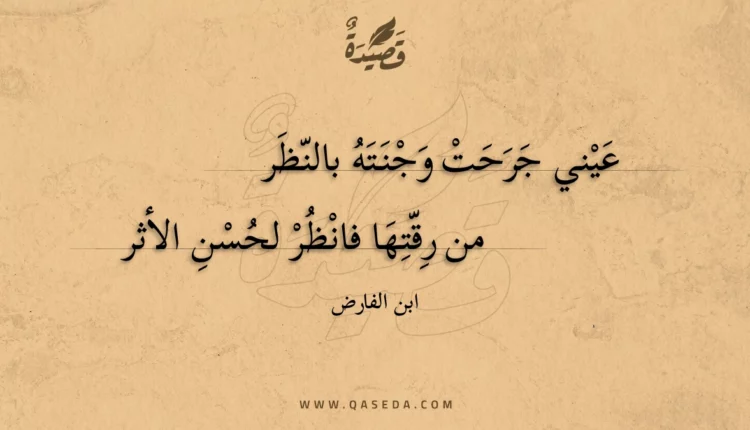 قَصِيْدَةٌ
عَيْني جَرَحَتْ وَجْنَتَهُ بالنّظَر
من رِقّتِهَا فانْظُرْ لحُسْنِ الأثر
ابن الفارض
WWW.QASEDA.COM